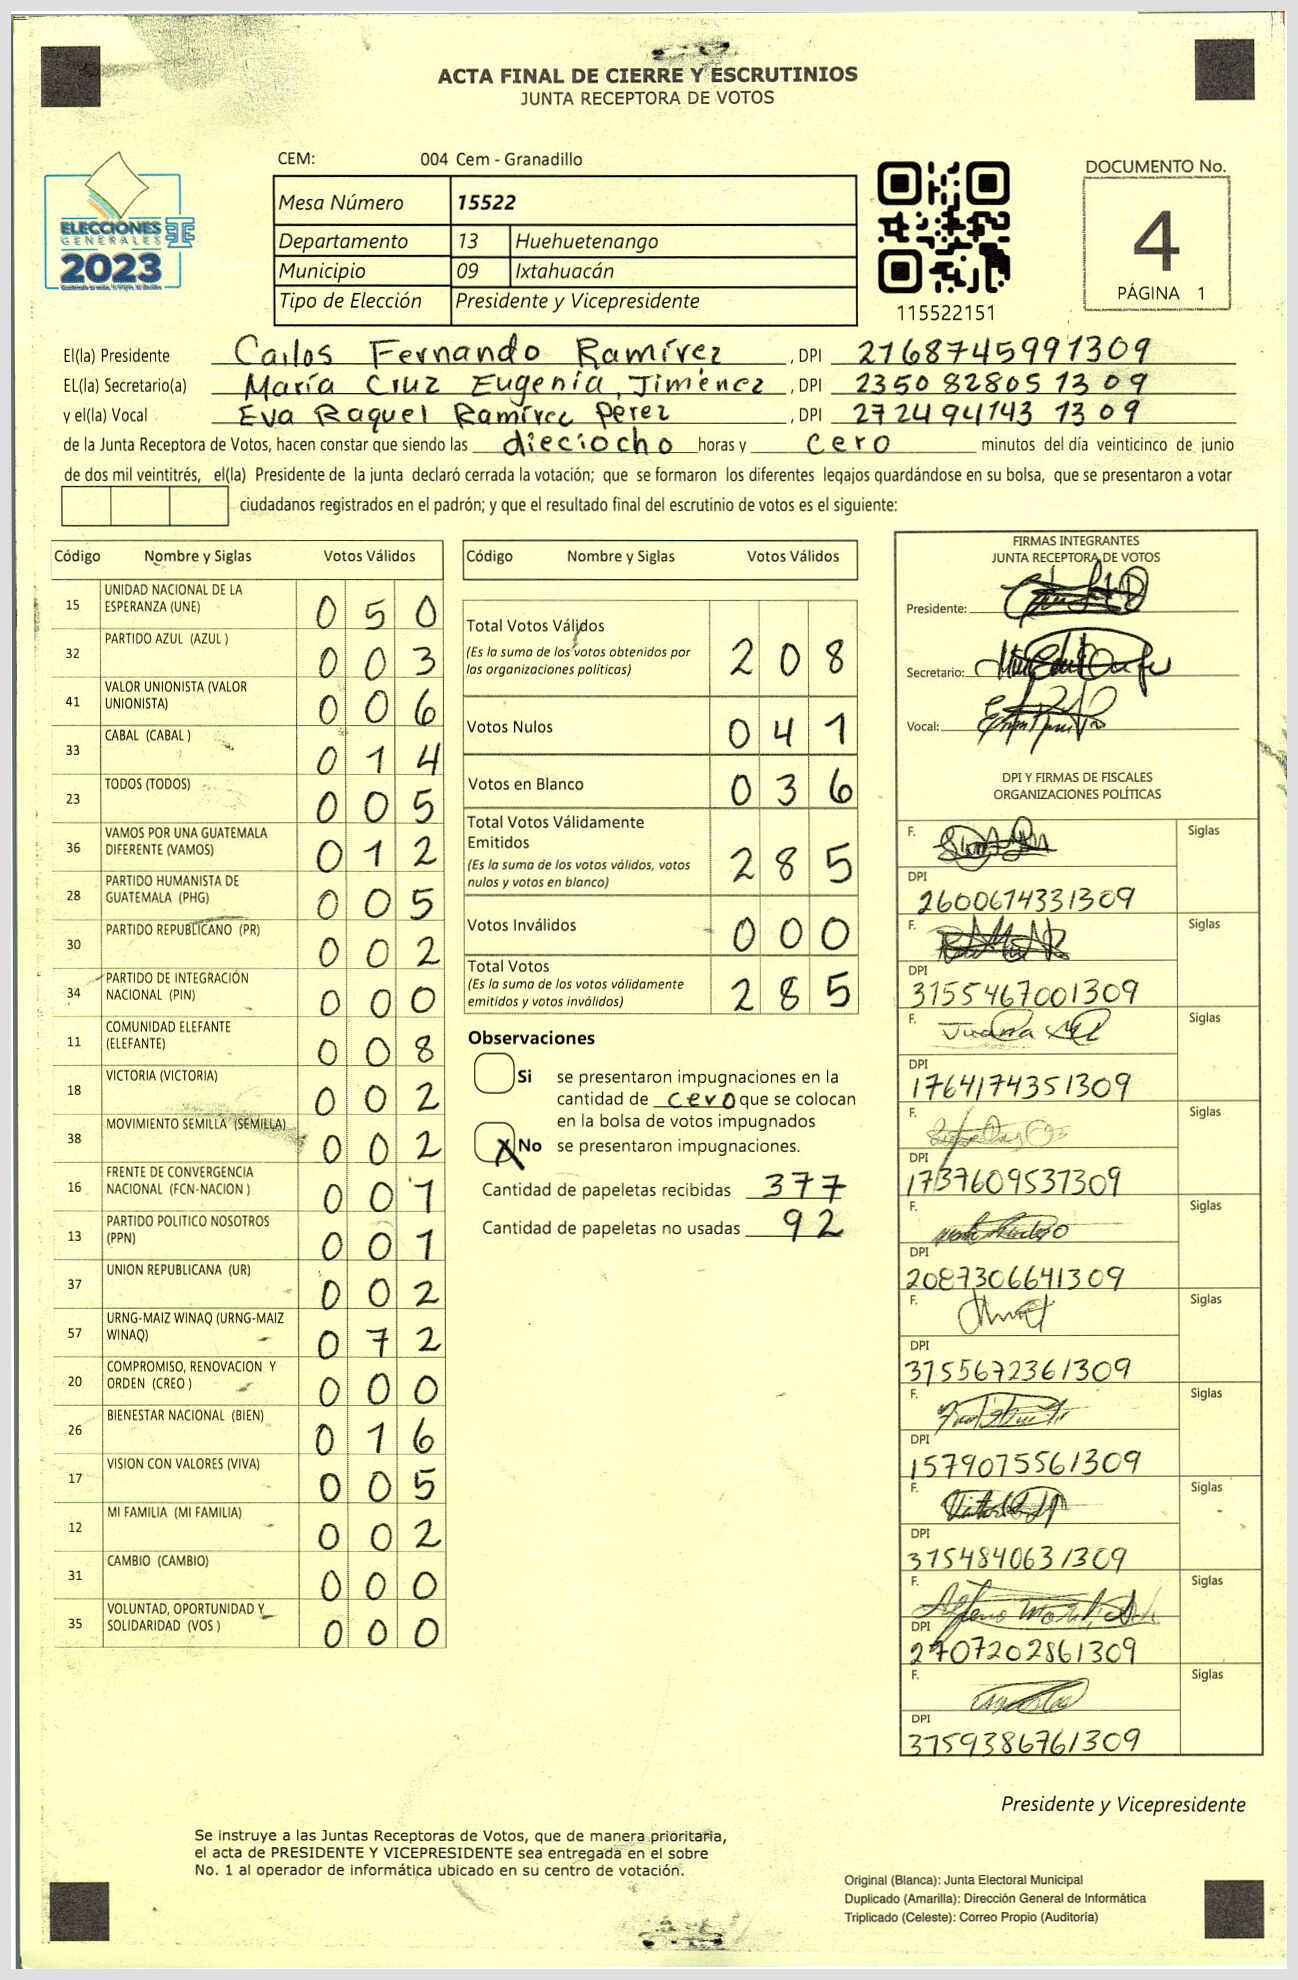 ACTA FINAL DE CIERRE Y ESCRUTINIOS
JUNTA RECEPTORA DE VOTOS
CEM: 004 Cem - Granadillo
ELECCIONES
GENERALES
2023
Mesa Número 15522
Departamento 13 Huehuetenango
Municipio 09 Ixtahuacán
Tipo de Elección Presidente y Vicepresidente
115522151
DOCUMENTO No.
4
PÁGINA 1
El(la) Presidente Carlos Fernando Ramírez , DPI 2768745991309
EL(la) Secretario(a) María Cruz Eugenia Jiménez , DPI 2350828051309
y el(la) Vocal Eva Raquel Ramírez Pérez , DPI 2724941431309
de la Junta Receptora de Votos, hacen constar que siendo las dieciocho horas y cero minutos del día veinticinco de junio
de dos mil veintitrés, el(la) Presidente de la junta declaró cerrada la votación; que se formaron los diferentes legajos guardándose en su bolsa, que se presentaron a votar
ciudadanos registrados en el padrón; y que el resultado final del escrutinio de votos es el siguiente:
Código Nombre y Siglas Votos Válidos
15 UNIDAD NACIONAL DE LA
ESPERANZA (UNE) 050
32 PARTIDO AZUL (AZUL ) 003
41 VALOR UNIONISTA (VALOR
UNIONISTA) 006
33 CABAL (CABAL ) 014
23 TODOS (TODOS) 005
36 VAMOS POR UNA GUATEMALA
DIFERENTE (VAMOS) 012
28 PARTIDO HUMANISTA DE
GUATEMALA (PHG) 005
30 PARTIDO REPUBLICANO (PR) 002
34 PARTIDO DE INTEGRACIÓN
NACIONAL (PIN) 000
11 COMUNIDAD ELEFANTE
(ELEFANTE) 008
18 VICTORIA (VICTORIA) 002
38 MOVIMIENTO SEMILLA (SEMILLA) 002
16 FRENTE DE CONVERGENCIA
NACIONAL (FCN-NACION ) 001
13 PARTIDO POLITICO NOSOTROS
(PPN) 001
37 UNION REPUBLICANA (UR) 002
57 URNG-MAIZ WINAQ (URNG-MAIZ
WINAQ) 072
20 COMPROMISO, RENOVACION Y
ORDEN (CREO ) 000
26 BIENESTAR NACIONAL (BIEN) 016
17 VISION CON VALORES (VIVA) 005
12 MI FAMILIA (MI FAMILIA) 002
31 CAMBIO (CAMBIO) 000
35 VOLUNTAD, OPORTUNIDAD Y
SOLIDARIDAD (VOS ) 000
Código Nombre y Siglas Votos Válidos
Total Votos Válidos
(Es la suma de los votos obtenidos por
las organizaciones políticas) 208
Votos Nulos 041
Votos en Blanco 036
Total Votos Válidamente
Emitidos
(Es la suma de los votos válidos, votos
nulos y votos en blanco) 285
Votos Inválidos 000
Total Votos
(Es la suma de los votos válidamente
emitidos y votos inválidos) 285
Observaciones
Si se presentaron impugnaciones en la
cantidad de cero que se colocan
en la bolsa de votos impugnados
X No se presentaron impugnaciones.
Cantidad de papeletas recibidas 377
Cantidad de papeletas no usadas 92
FIRMAS INTEGRANTES
JUNTA RECEPTORA DE VOTOS
Presidente:
Secretario:
Vocal:
DPI Y FIRMAS DE FISCALES
ORGANIZACIONES POLÍTICAS
F. Siglas
DPI
2600674331309
F. Siglas
DPI
3155467001309
F. Juana Siglas
DPI
1764174351309
F. Siglas
DPI
1737609537309
F. Siglas
DPI
2087306641309
F. Siglas
DPI
3755672361309
F. Siglas
DPI
1579075561309
F. Siglas
DPI
3754840631309
F. Siglas
DPI
2707202861309
F. Siglas
DPI
3759386761309
Presidente y Vicepresidente
Se instruye a las Juntas Receptoras de Votos, que de manera prioritaria,
el acta de PRESIDENTE Y VICEPRESIDENTE sea entregada en el sobre
No. 1 al operador de informática ubicado en su centro de votación.
Original (Blanca): Junta Electoral Municipal
Duplicado (Amarilla): Dirección General de Informática
Triplicado (Celeste): Correo Propio (Auditoría)